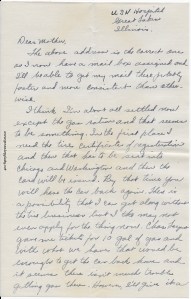 USN Hospital
Great Lakes
Illinois.
Dear Mother,
The above address is the correct one
so I now have a mail box assigned and
I'll be able to get my mail there,
faster and more consistent than other-
wise.
I think I'm about all settled now
except the gas ration and that seems
to be something. In the first place I
need the tire certificate & registration
and then that has to be sent into
Chicago and Washington and then the
card will be issued. By that time you
will have the car back again. This is
a possibility that I can get along without
the tire business but I
even apply for the thing now.
gave me tickets for 10 gal of gas and
with what we have that would be
enough to get the car back home and
it seems there isn't much trouble
getting you there. However, I'll give it a